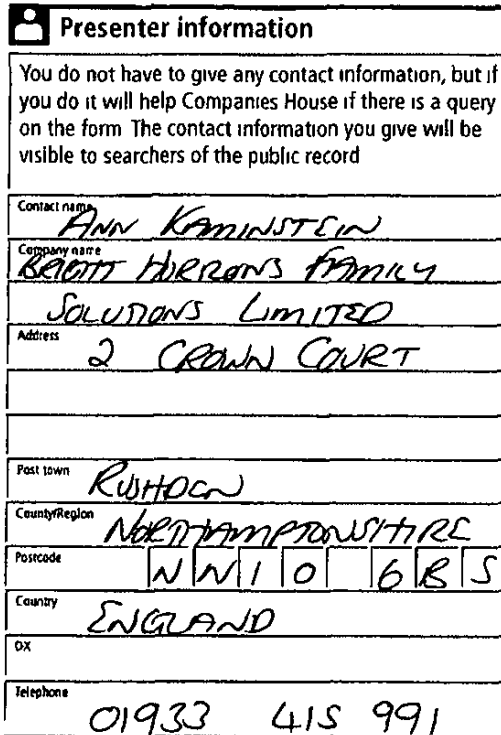 Presenter information
You do not have to give any contact information, but if
you do it will help Companies House if there is a query
on the form The contact information you give will be
visible to searchers of the public record
Contact name
ANN KAMINSTEIN
Company name
BRIGHT HORIZONS FAMILY
SOLUTIONS LIMITED
Address
2 CROWN COURT
Post town
RUSHDEN
County/Region
NORTHAMPTONSHIRE
Postcode
NN10 6BS
Country
ENGLAND
DX
Telephone
01933 415 991